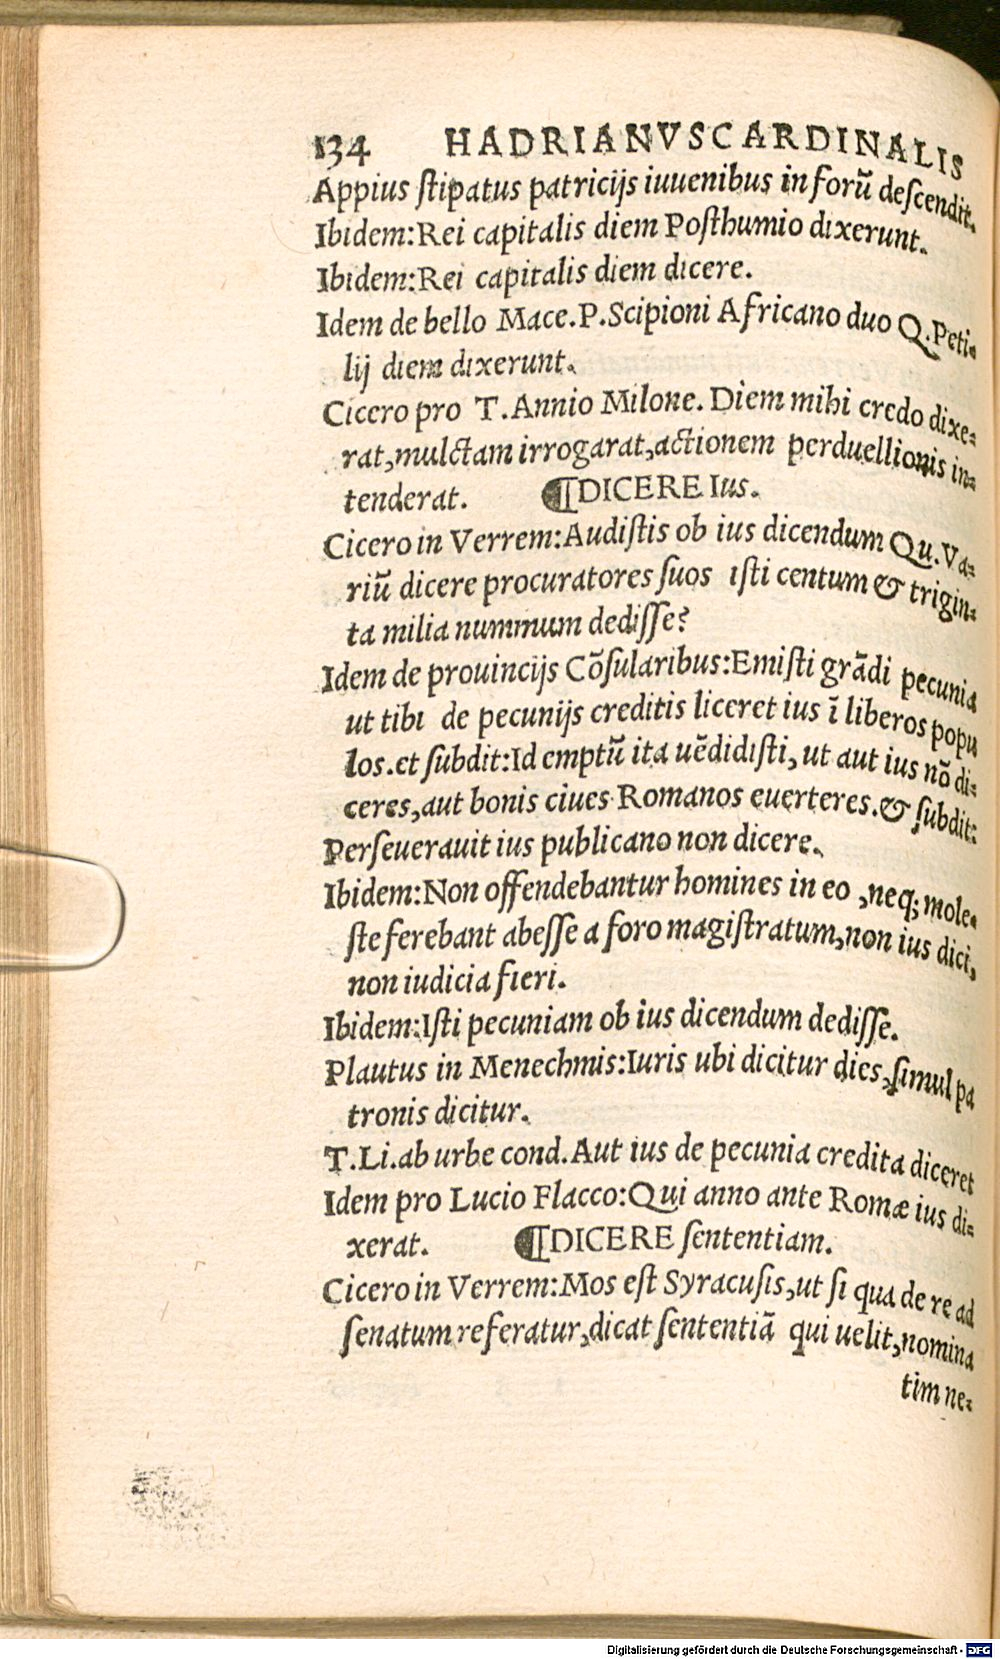 134 HADRIANVS CARDINALIS
Appius ſtipatus patricijs iuuenibus in forũ deſcendit.
Ibidem:Rei capitalis diem Poſthumio dixerunt.
Ibidem:Rei capitalis diem dicere.
Idem de bello Mace.P.Scipioni Africano duo Q.Peti-
lij diem dixerunt.
Cicero pro T.Annio Milone. Diem mihi credo dixe-
rat,mulctam irrogarat,actionem perduellionis in-
tenderat. ¶DICERE Ius.
Cicero in Verrem:Audiſtis ob ius dicendum Qu.Va-
riũ dicere procuratores ſuos iſti centum & trigin-
ta milia nummum dediſſe?
Idem de prouincijs Cõſularibus:Emiſti grãdi pecunia
ut tibi de pecunijs creditis liceret ius ĩ liberos popu
los.et ſubdit:Id emptũ ita uẽdidiſti, ut aut ius nõ di-
ceres,aut bonis ciues Romanos euerteres.& ſubdit:
Perſeuerauit ius publicano non dicere.
Ibidem:Non offendebantur homines in eo ,neq; mole-
ſte ferebant abeſſe a foro magiſtratum,non ius dici,
non iudicia fieri.
Ibidem:Iſti pecuniam ob ius dicendum dediſſe.
Plautus in Menechmis:Iuris ubi dicitur dies,ſimul pa
tronis dicitur.
T.Li.ab urbe cond.Aut ius de pecunia credita diceret
Idem pro Lucio Flacco:Qui anno ante Romæ ius di-
xerat. ¶DICERE ſententiam.
Cicero in Verrem:Mos eſt Syracuſis,ut ſi qua de re ad
ſenatum referatur,dicat ſententiã qui uelit,nomina
tim ne-
Digitalisierung gefördert durch die Deutsche Forschungsgemeinschaft - DFG